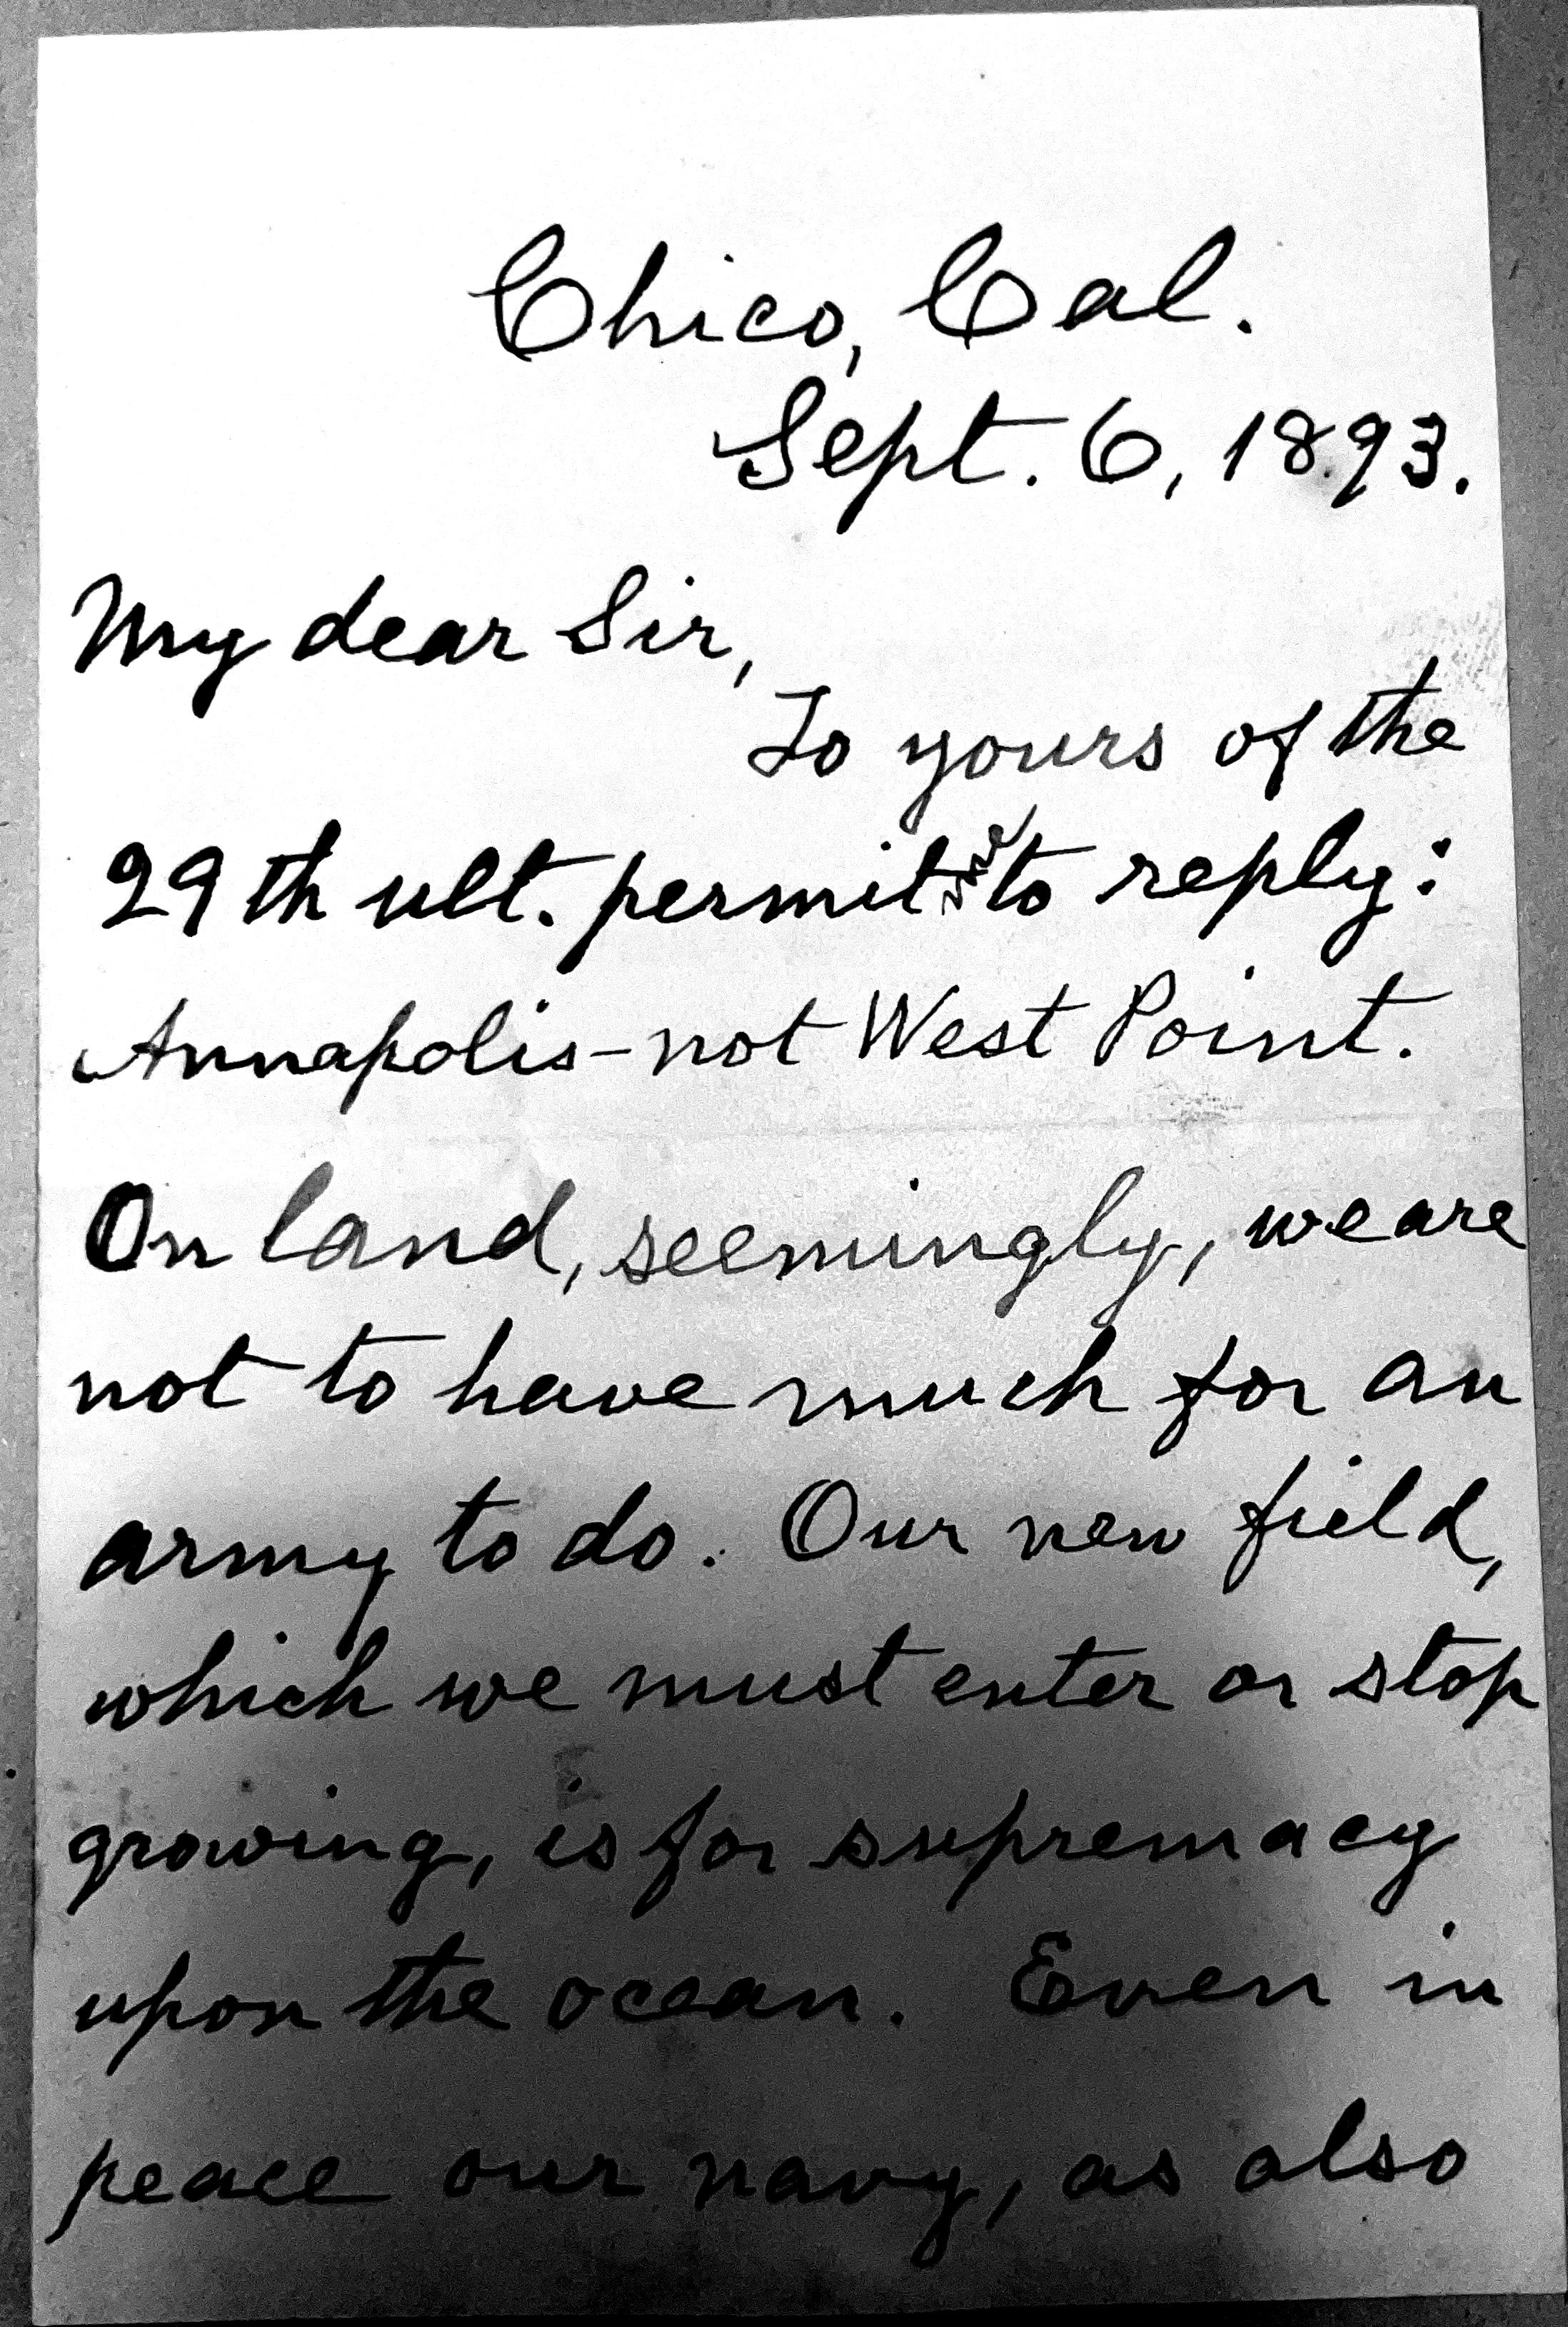 Chico, Cal.
Sept. 6, 1893.
My dear Sir,
To yours of the
29th ult. permit me to reply:
Annapolis - not West Point.
On land, seemingly, we are
not to have much for an
army to do. Our new field,
which we must enter or stop
growing, is for supremacy
upon the ocean. Even in
peace our navy, as also